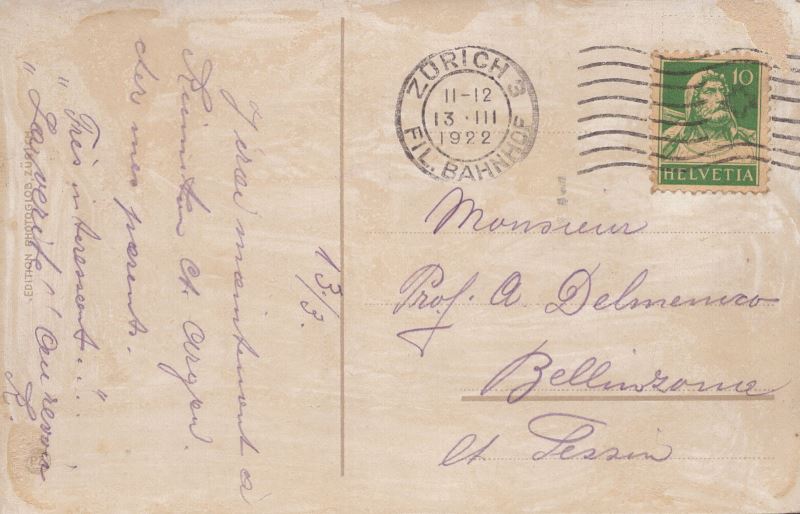 13/3.
J'irai maintenant à
Ct. Argov.
chez mes parents.
" Très interessant....
" La verité"! Au revoir
EDITION PHOTOGLOB ZURICH
ZÜRICH 3
11-12
13·III
1922
FIL. BAHNHOF
10
HELVETIA
Monsieur
Prof. A Delmenico
Bellinzona
Ct Tessin